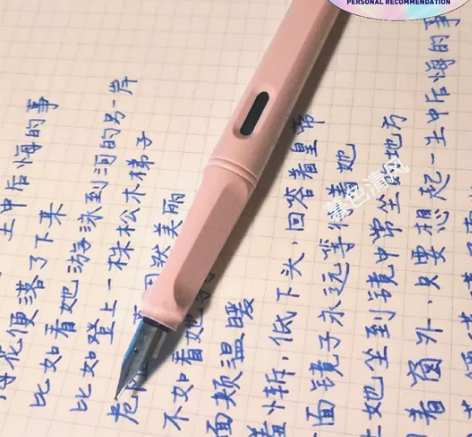 生中后悔的事
花便落了下来
比如看她游泳到河的另一岸
比如登上一株松木梯子
危 固然美丽
不如看她
面颊温暖
羞惭,低下头,回答着皇
面镜子永远等候她
上她坐到镜中常坐的地方
着窗外,只要想起一生中后悔的事
暮色清风
PERSONAL RECOMMENDATION